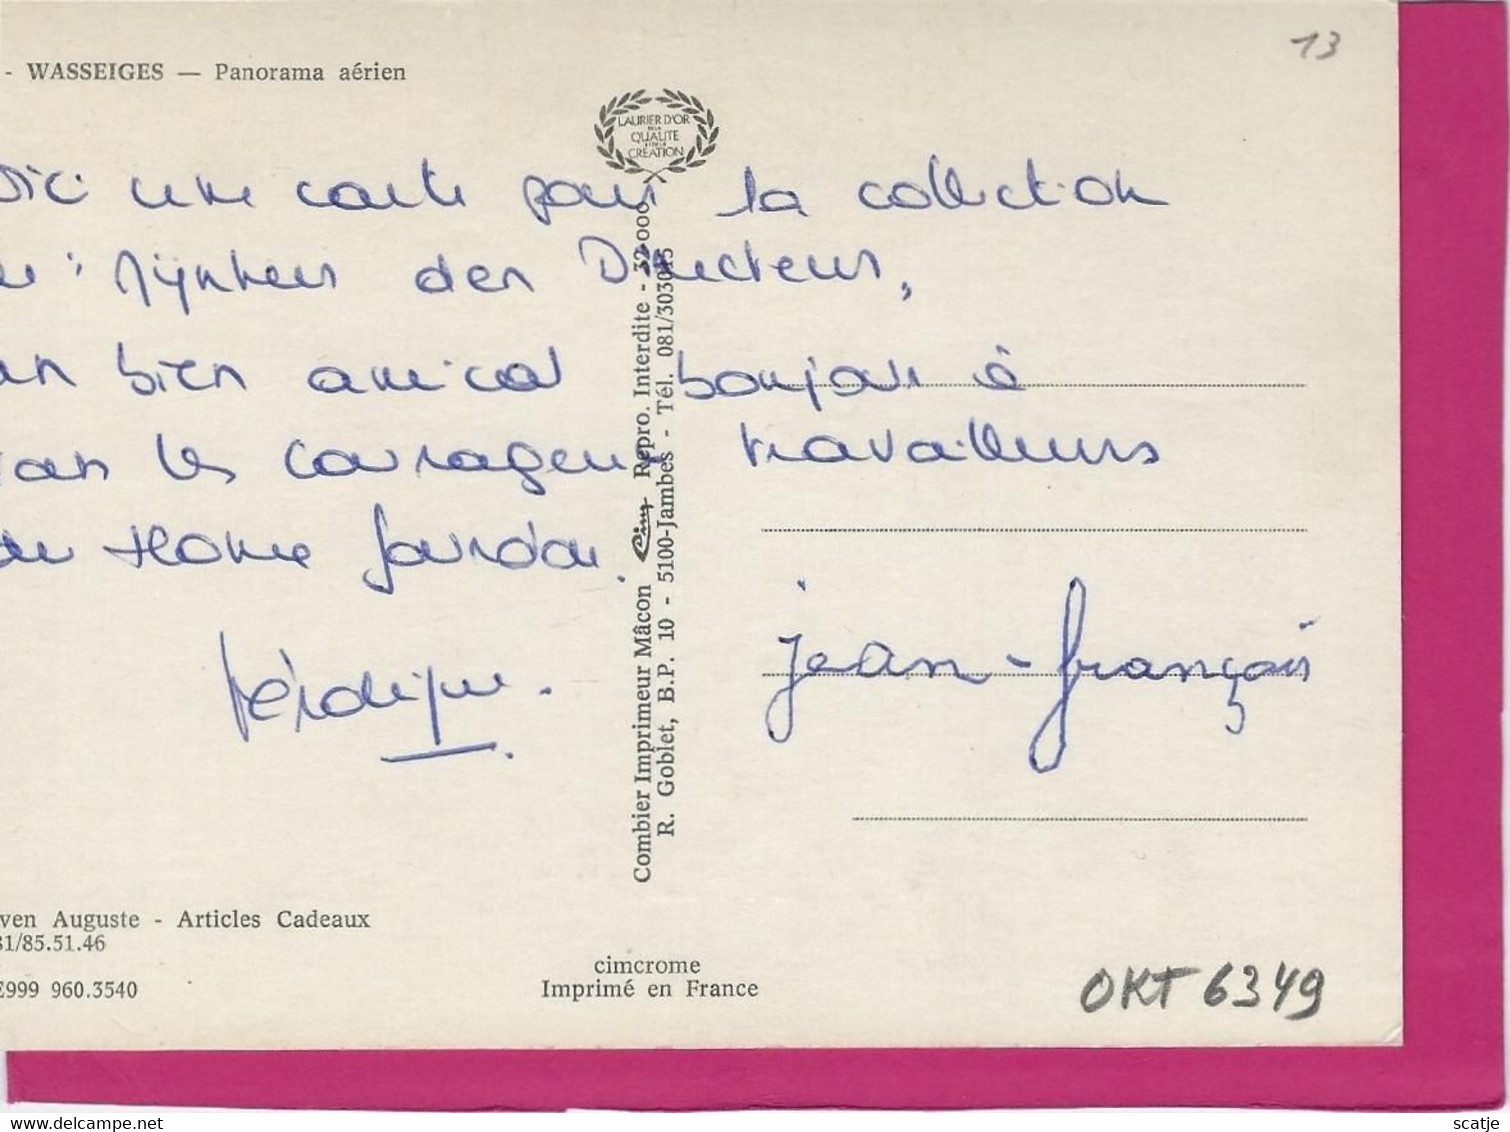 13
- WASSEIGES — Panorama aérien
LAURIER D'OR
DE LA
QUALITE
CRÉATION
une carte pour la collection
den Directeur,
bien amical bonjour à
les courageux travailleurs
Home Jourdan.
jean-françois
Combier Imprimeur Mâcon Cim Repro. Interdite - 32.000
R. Goblet, B.P. 10 - 5100-Jambes - Tél. 081/303015
ven Auguste - Articles Cadeaux
81/85.51.46
E999 960.3540
cimcrome
Imprimé en France
OKT 6349
delcampe.net
scatje